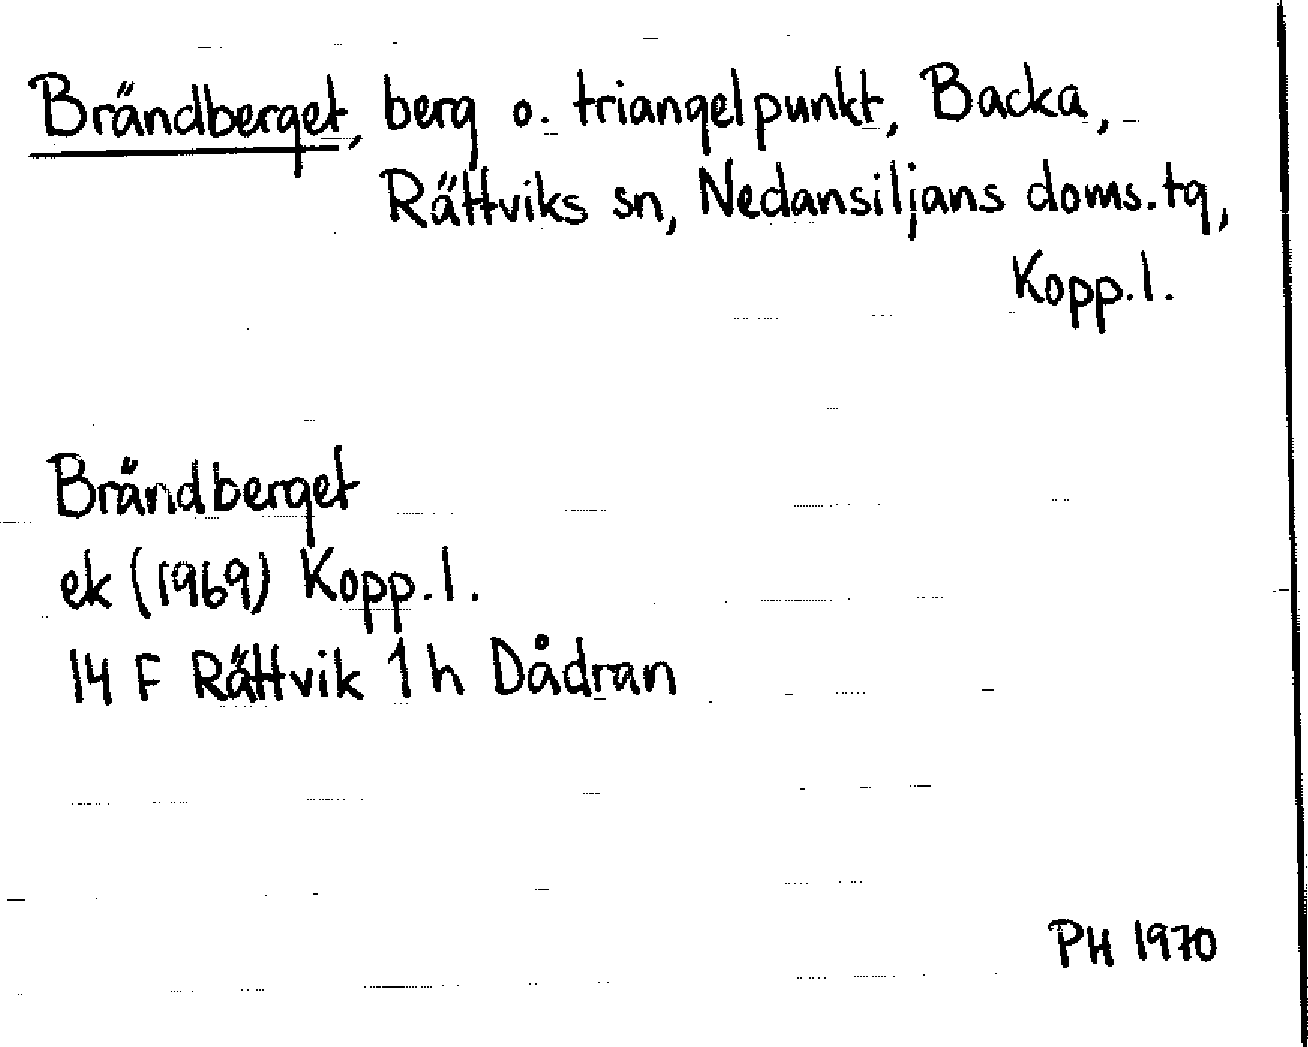 Brändberget, berg o. triangelpunkt, Backa,
Rättviks sn, Nedansiljans doms.tg,
Kopp.l.
Brändberget
ek (1969) Kopp.l.
14 F Rättvik 1 h Dådran
PH 1970